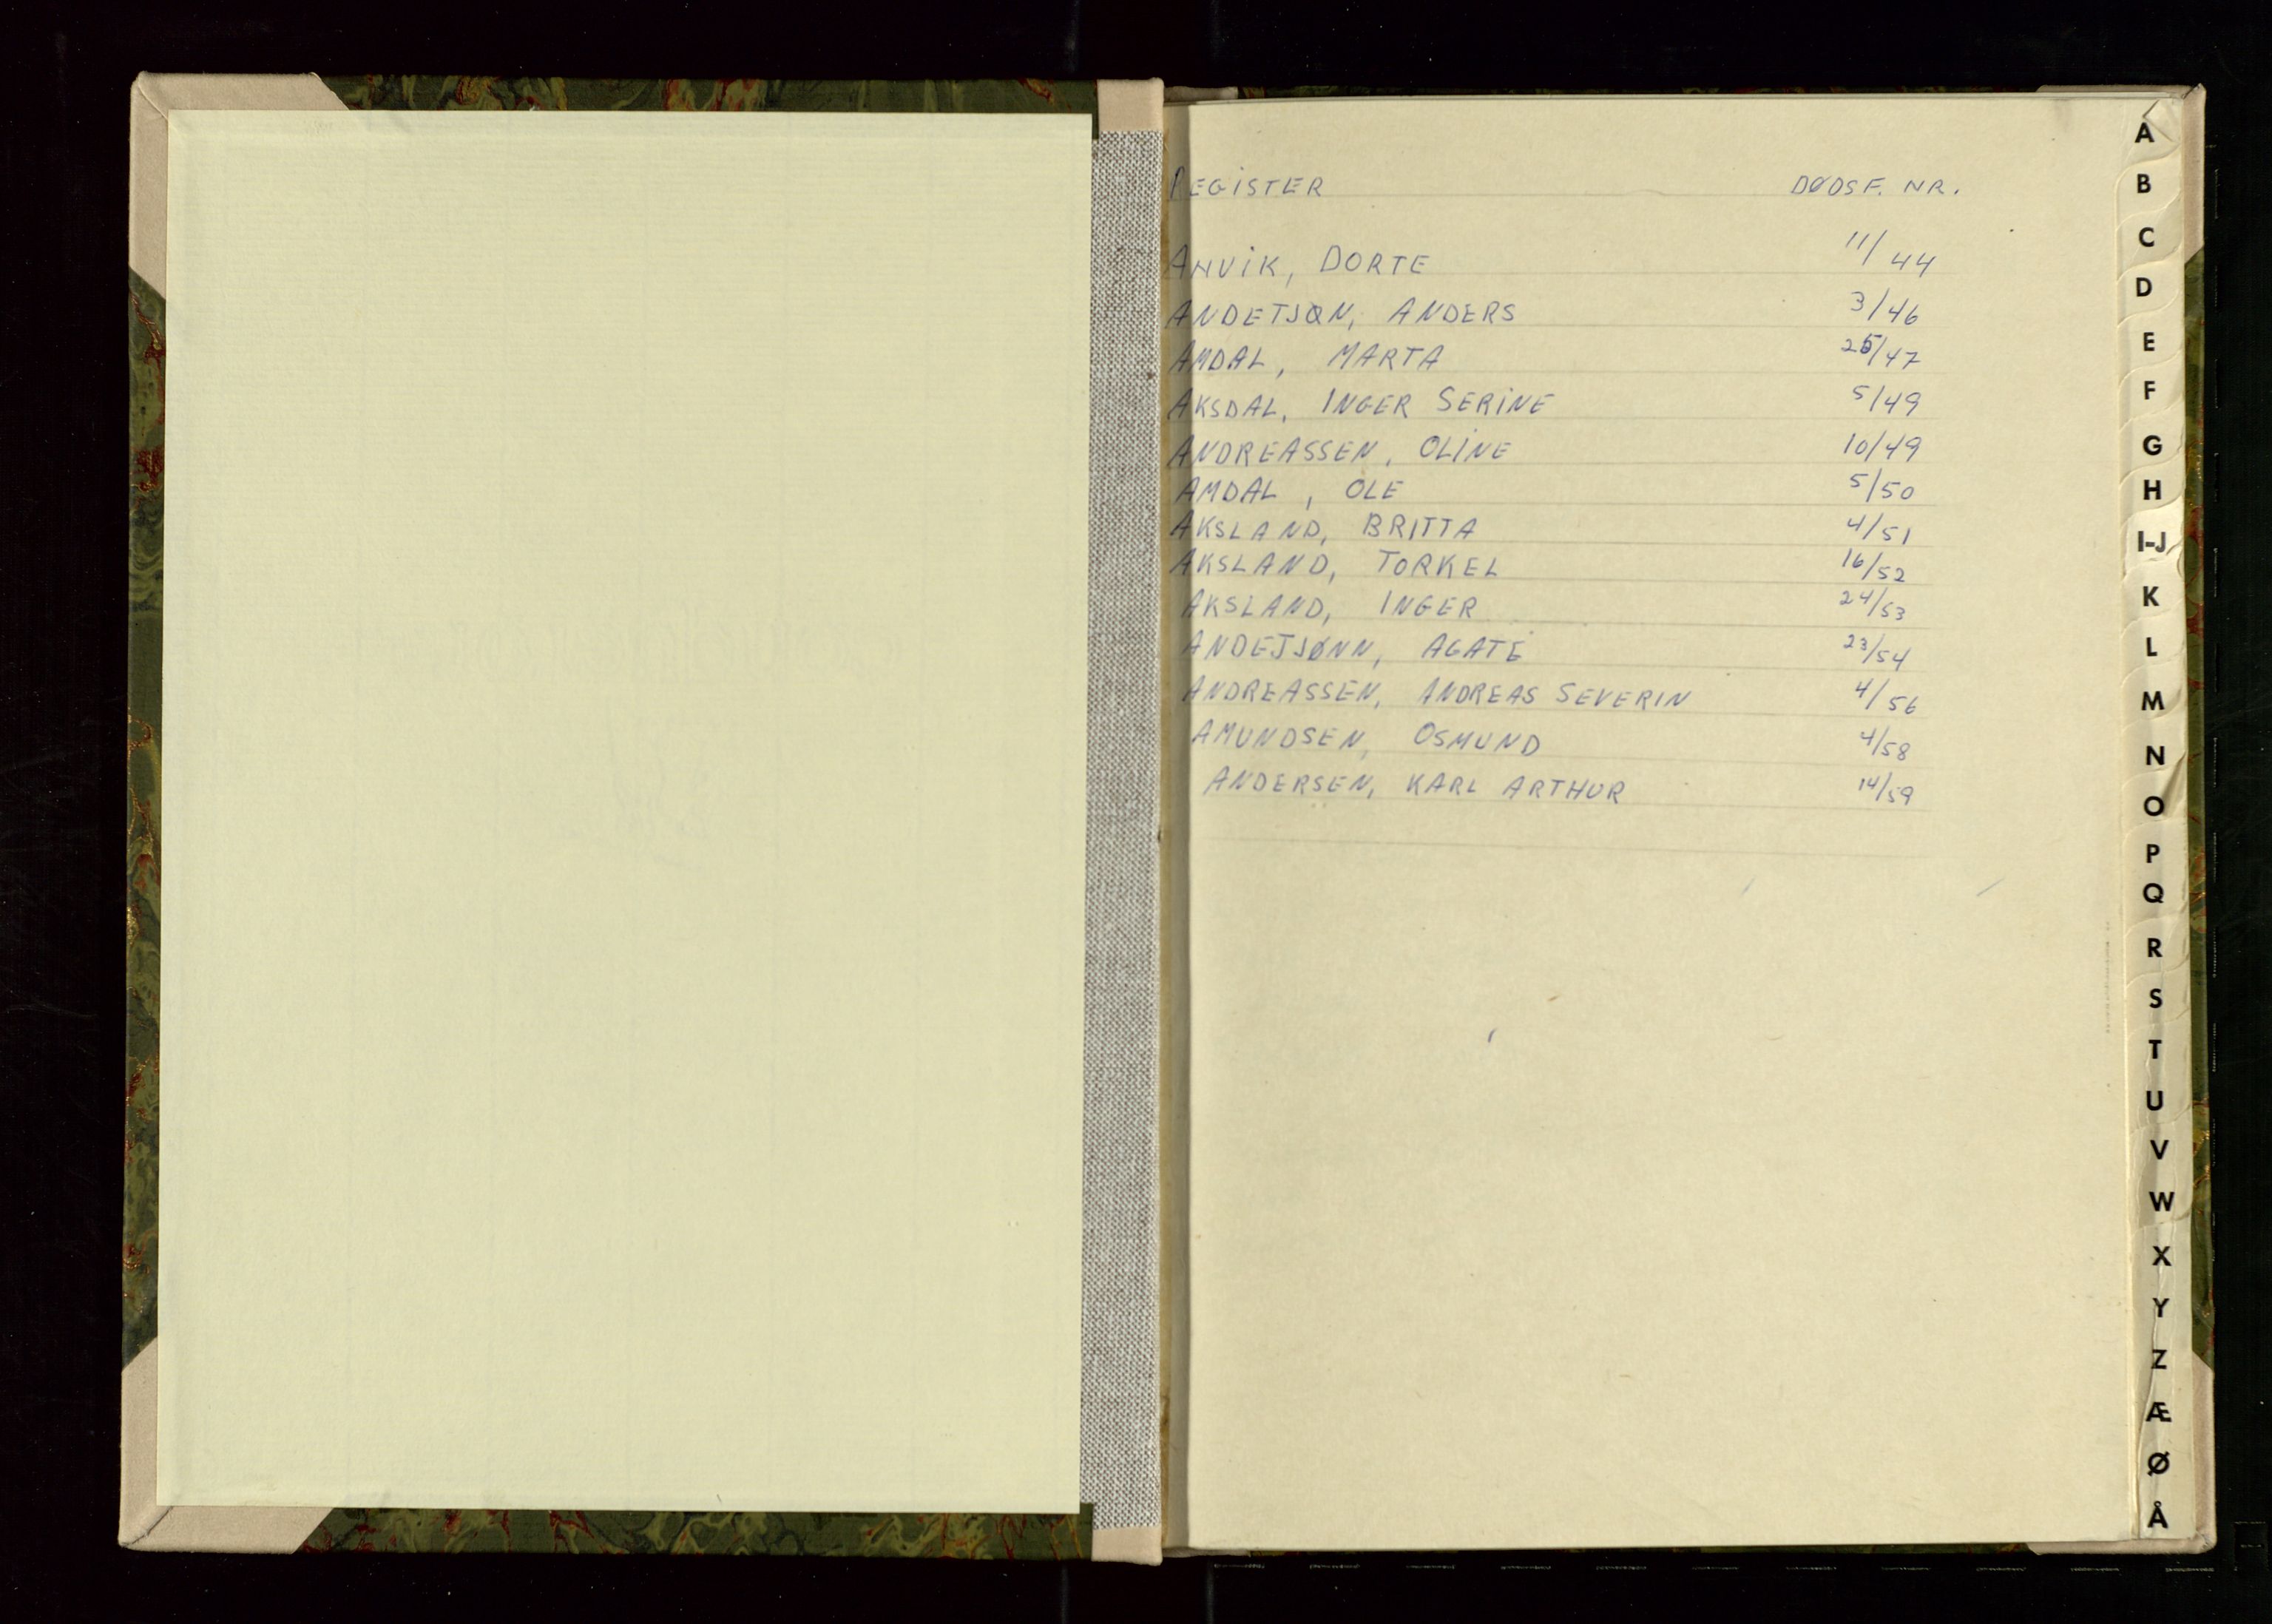 REGISTER DØDSF. NR.
ANVIK, DORTE 11/44
ANDETJØN, ANDERS 3/46
AMDAL, MARTA 25/47
AKSDAL, INGER SERINE 5/49
ANDREASSEN, OLINE 10/49
AMDAL, OLE 5/50
AKSLAND, BRITTA 4/51
AKSLAND, TORKEL 16/52
AKSLAND, INGER 24/53
ANDETJØNN, AGATE 23/54
ANDREASSEN, ANDREAS SEVERIN 4/56
AMUNDSEN, OSMUND 4/58
ANDERSEN, KARL ARTHUR 14/59
A
B
C
D
E
F
G
H
I-J
K
L
M
N
O
P
Q
R
S
T
U
V
W
X
Y
Z
Æ
Ø
Å